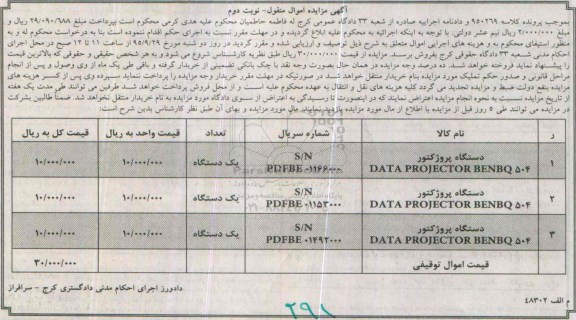 آگهی مزایده اموال منقول- نوبت دوم
بموجب پرونده کلاسه ۹۵۰۲۶۹ و دادنامه اجراییه صادره از شعبه ۳۳ دادگاه عمومی کرج له فاطمه حاطمیان محکوم علیه هدی کرمی محکوم است بپرداخت مبلغ ۲۹/۰۹۰/۶۸۸ ریال و
مبلغ ۲/۰۰۰/۰۰۰ ریال نیم عشر دولتی. با توجه به اینکه اجرائیه به محکوم علیه ابلاغ گردیده و در مهلت مقرر نسبت به اجرای حکم اقدام ننموده است بنا به درخواست محکوم له و به
منظور استیفای محکوم به و هزینه های اجرایی اموال متعلق به شرح ذیل توصیف و ارزیابی شده و مقرر گردید در روز دو شنبه مورخ ۹۵/۹/۲۹ از ساعت ۱۱ تا ۱۲ صبح در محل اجرای
احکام مدنی شعبه ۳۳ دادگاه حقوقی کرج بفروش برسد. مزایده از قیمت ۳۰/۰۰۰/۰۰۰ ریال طبق نظریه کارشناس شروع می شود و به هر شخص حقیقی و حقوقی که بالاترین قیمت
را پیشنهاد نماید فروخته خواهد شد. ده درصد وجه مزایده در همان حال بصورت وجه نقد یا چک بانکی تضمینی از خریدار گرفته و باقی طی یک ماه از وی وصول و پس از انجام
مراحل قانونی و صدور حکم تملیک مورد مزایده بنام خریدار منتقل خواهد شد در صورتیکه در مهلت مقرر خریدار وجه مزایده را پرداخت ننماید سپرده وی پس از کسر هزینه های
مزایده بنفع دولت ضبط و مزایده تجدید می گردد کلیه هزینه های نقل و انتقال به عهده محکوم علیه است و از محل فروش پرداخت خواهد شد طرفین می توانند طی مدت یک هفته
از تاریخ مزایده نسبت به نحوه انجام مزایده اعتراض نمایند که در اینصورت تا رسیدگی به اعتراض از سوی دادگاه مورد مزایده به نام خریدار منتقل نخواهد شد. ضمناً طالبین بشرکت
در مزایده می توانند طی ۵ روز قبل از مزایده با اطلاع از مال مورد مزایده بازدید نمایند. مال مورد مزایده و بهای آن طبق نظر کارشناس بدین شرح است:
ر نام کالا شماره سریال تعداد قیمت واحد به ریال قیمت کل به ریال
۱ دستگاه پروژکتور DATA PROJECTOR BENBQ ۵۰۴ S/N PDFBE ۰۱۱۶۶۰۰۰ یک دستگاه ۱۰/۰۰۰/۰۰۰ ۱۰/۰۰۰/۰۰۰
۲ دستگاه پروژکتور DATA PROJECTOR BENBQ ۵۰۴ S/N PDFBE ۰۱۱۵۳۰۰۰ یک دستگاه ۱۰/۰۰۰/۰۰۰ ۱۰/۰۰۰/۰۰۰
۳ دستگاه پروژکتور DATA PROJECTOR BENBQ ۵۰۴ S/N PDFBE ۰۱۴۹۲۰۰۰ یک دستگاه ۱۰/۰۰۰/۰۰۰ ۱۰/۰۰۰/۰۰۰
قیمت اموال توقیفی ۳۰/۰۰۰/۰۰۰
دادورز اجرای احکام مدنی دادگستری کرج – سرافراز
م الف ۴۸۳۰۲
۲۹۱